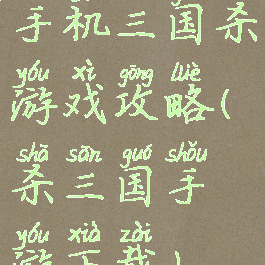 手机三国杀
yóu xì gōng lüè
游戏攻略(
shā sān guó shǒu
杀三国手
yóu xià zài
游下载)